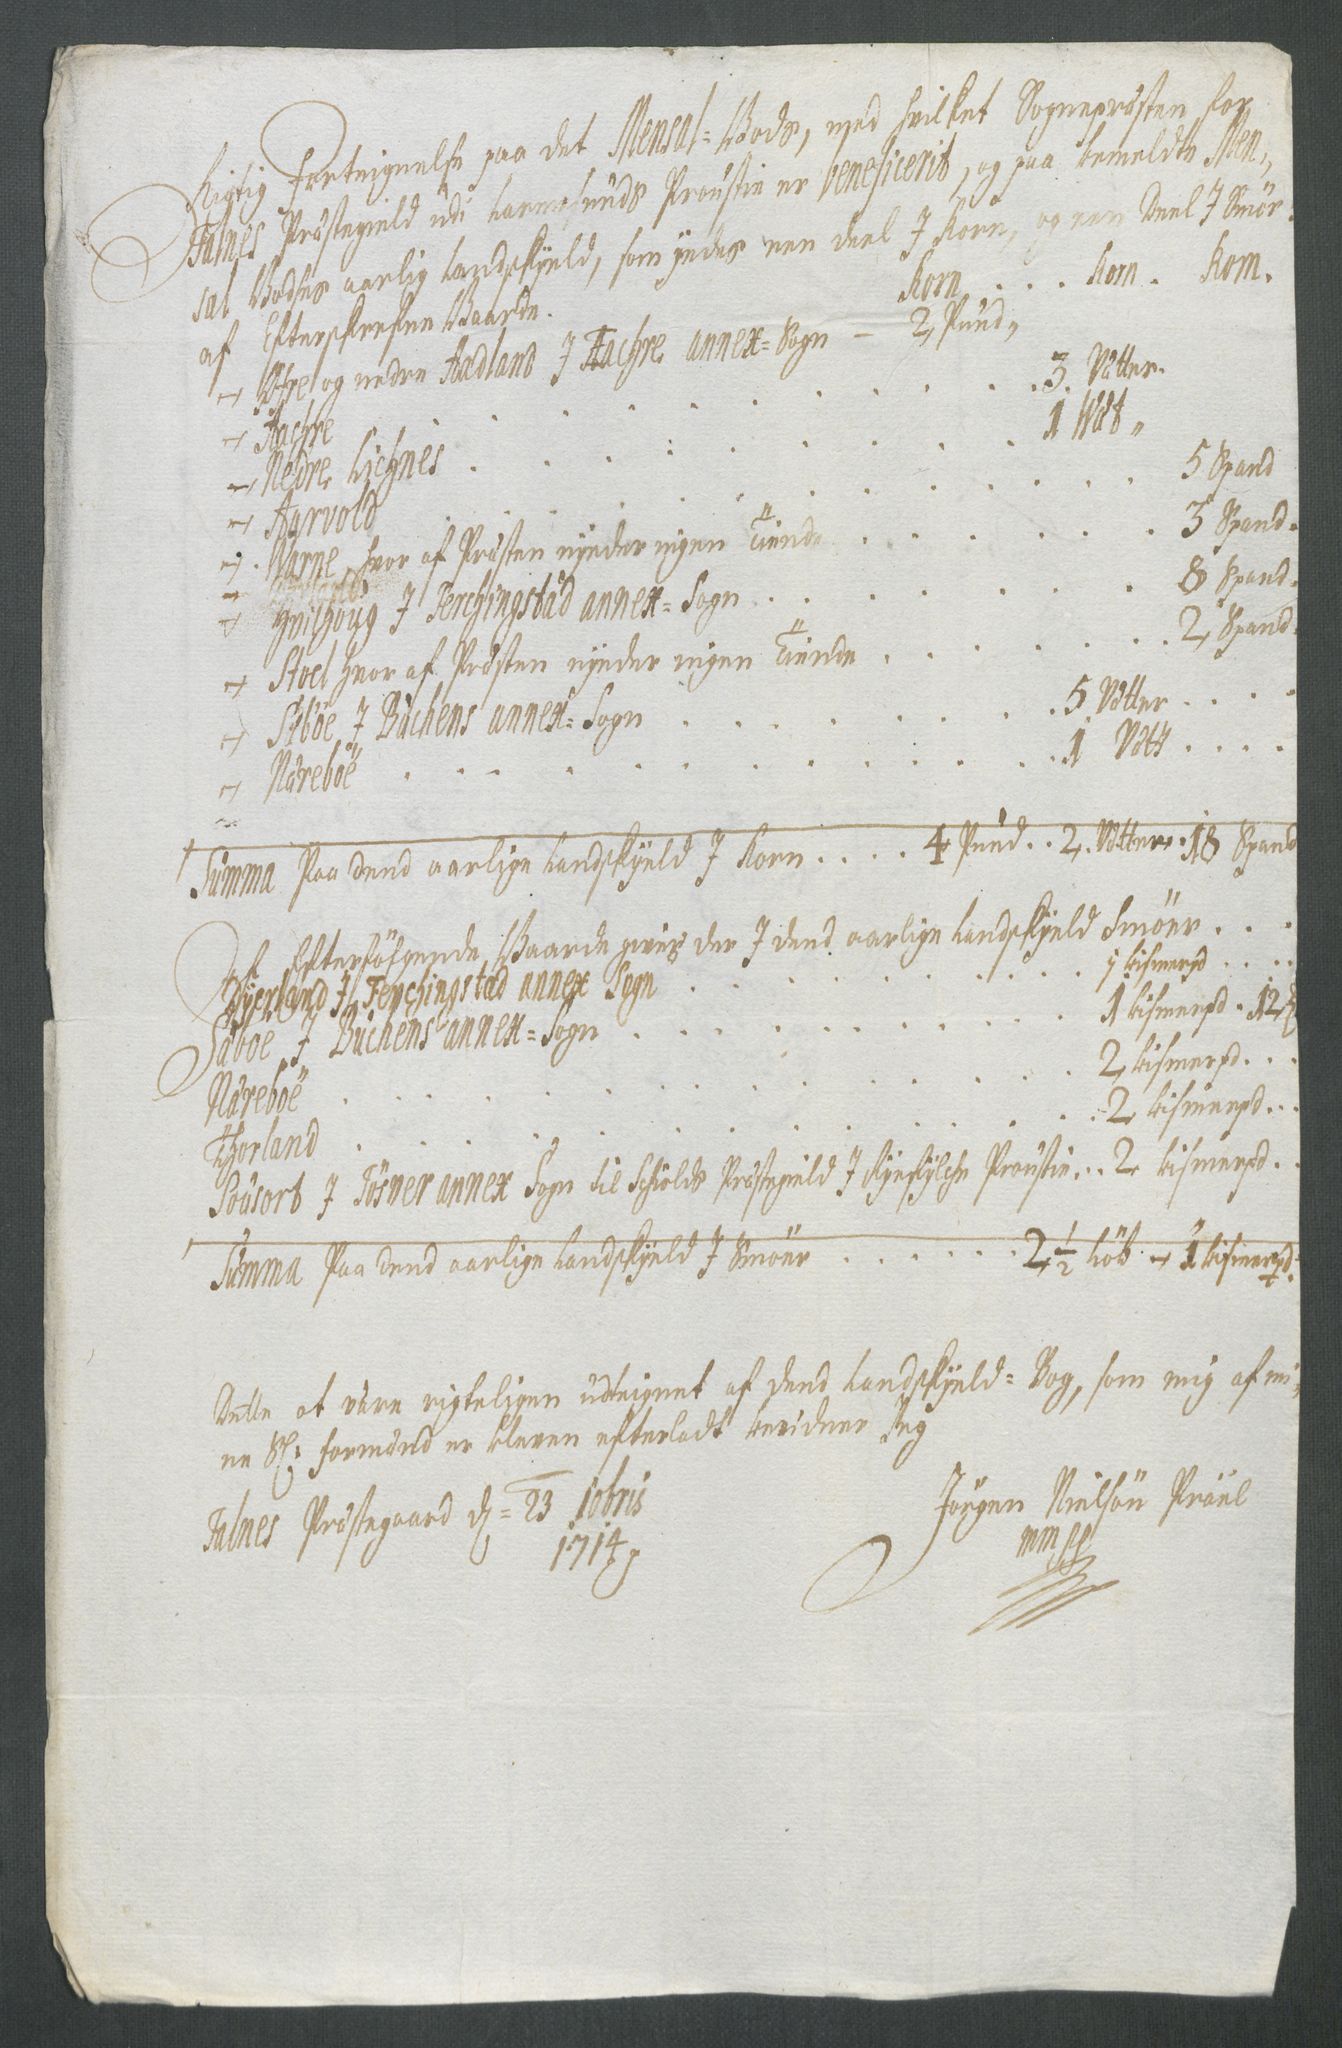 Rigtig Forteignelse paa det Mensal-Gods, med hvilket Sognepræsten for
Falnes Præstegield udi Karmesunds Proustie er beneficerit, og paa bemeldte Men,,
sal Godses aarlig Landskyeld, som ydes een deel J Korn, og een Deel J Smör
af Efterskrefne Gaarde. Korn . . . Korn . Korn.
Öfre og nedre Aadland J Aachre annex-Sogn – 2 Pund,,
Aachre . . . 3 Vetter.
Nedre Lichnes . . . 1 Wæt,,
Aarvold . . . 5 Spand
Warne hvor af Præsten nyeder ingen Tiende . . . 3 Spand.
Hvilhoug J Ferchingstad annex-Sogn . . . 8 Spand.
Stoel hvor af Præsten nyeder ingen Tiende . . . 2 Spand.
Seböe J Buchens annex-Sogn . . . 5 Vetter . . .
Næreböe . . . 1 Vett . . . .
Summa Paa dend aarlige Landskyeld J Korn . . . . 4 Pund . . 2 Vetter . 18 Spand
Af Efterfölgende Gaarde gives der J dend aarlige Landskyeld Smöer . . .
Dyerland J Ferchingstad annex Sogn . . . 1 bismerpd . . .
Sæböe J Buchens annex-Sogn . . . 1 bismerpd . 12 ℔
Næreböe . . . 2 bismerpd . . .
Thorland . . . 2 bismerpd . . .
Sousort J Tösver annex Sogn til Schiolds Præstegield J Ryefylche Proustie . . 2 bismerpd . .
Summa Paa dend aarlige Landskyeld J Smöer . . . 2½ Löb – 1 bismerpd.
Dette at være rigteligen udteignet af dend Landskyeld-Bog, som mig af mi,,
ne Sl: Formænd er bleven efterladt bevidner Jeg
Falnes Præstegaard d= 23 10bris Jörgen Nielsön Præel
1714 mmpp